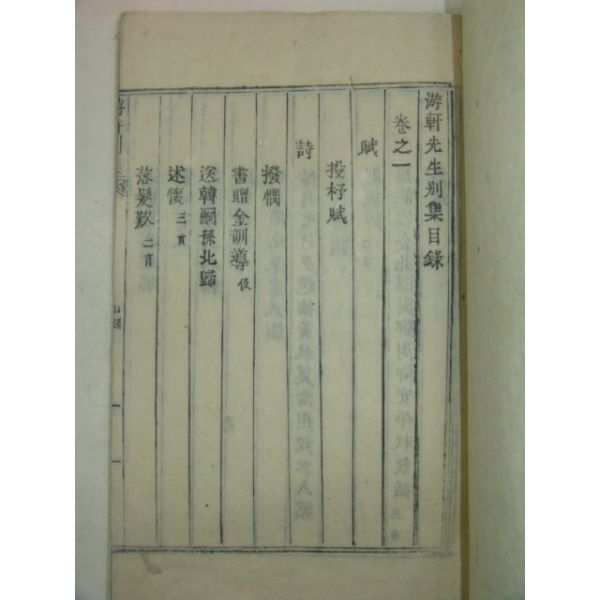 游軒先生別集目錄
卷之一
賦
投杼賦
詩
撥憫
書贈金訓導
送韓嗣孫北歸
述懷 三首
落髮歎 二首
目錄